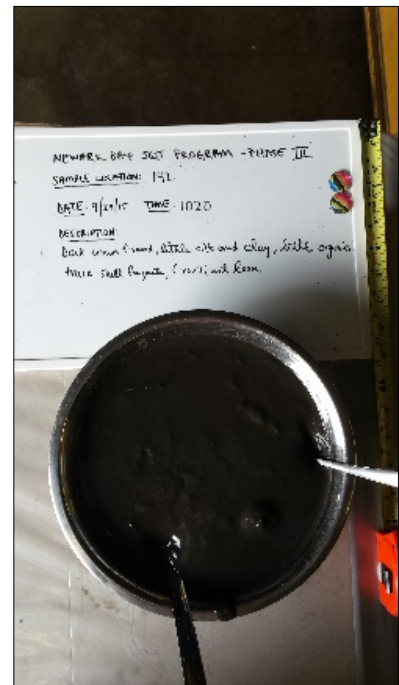 NEWARK BAY SQT PROGRAM - PHASE III
SAMPLE LOCATION: 142
DATE: 9/29/15 TIME: 1020
DESCRIPTION
Dark brown f sand, little silt and clay, little organics
trace shell fragments,